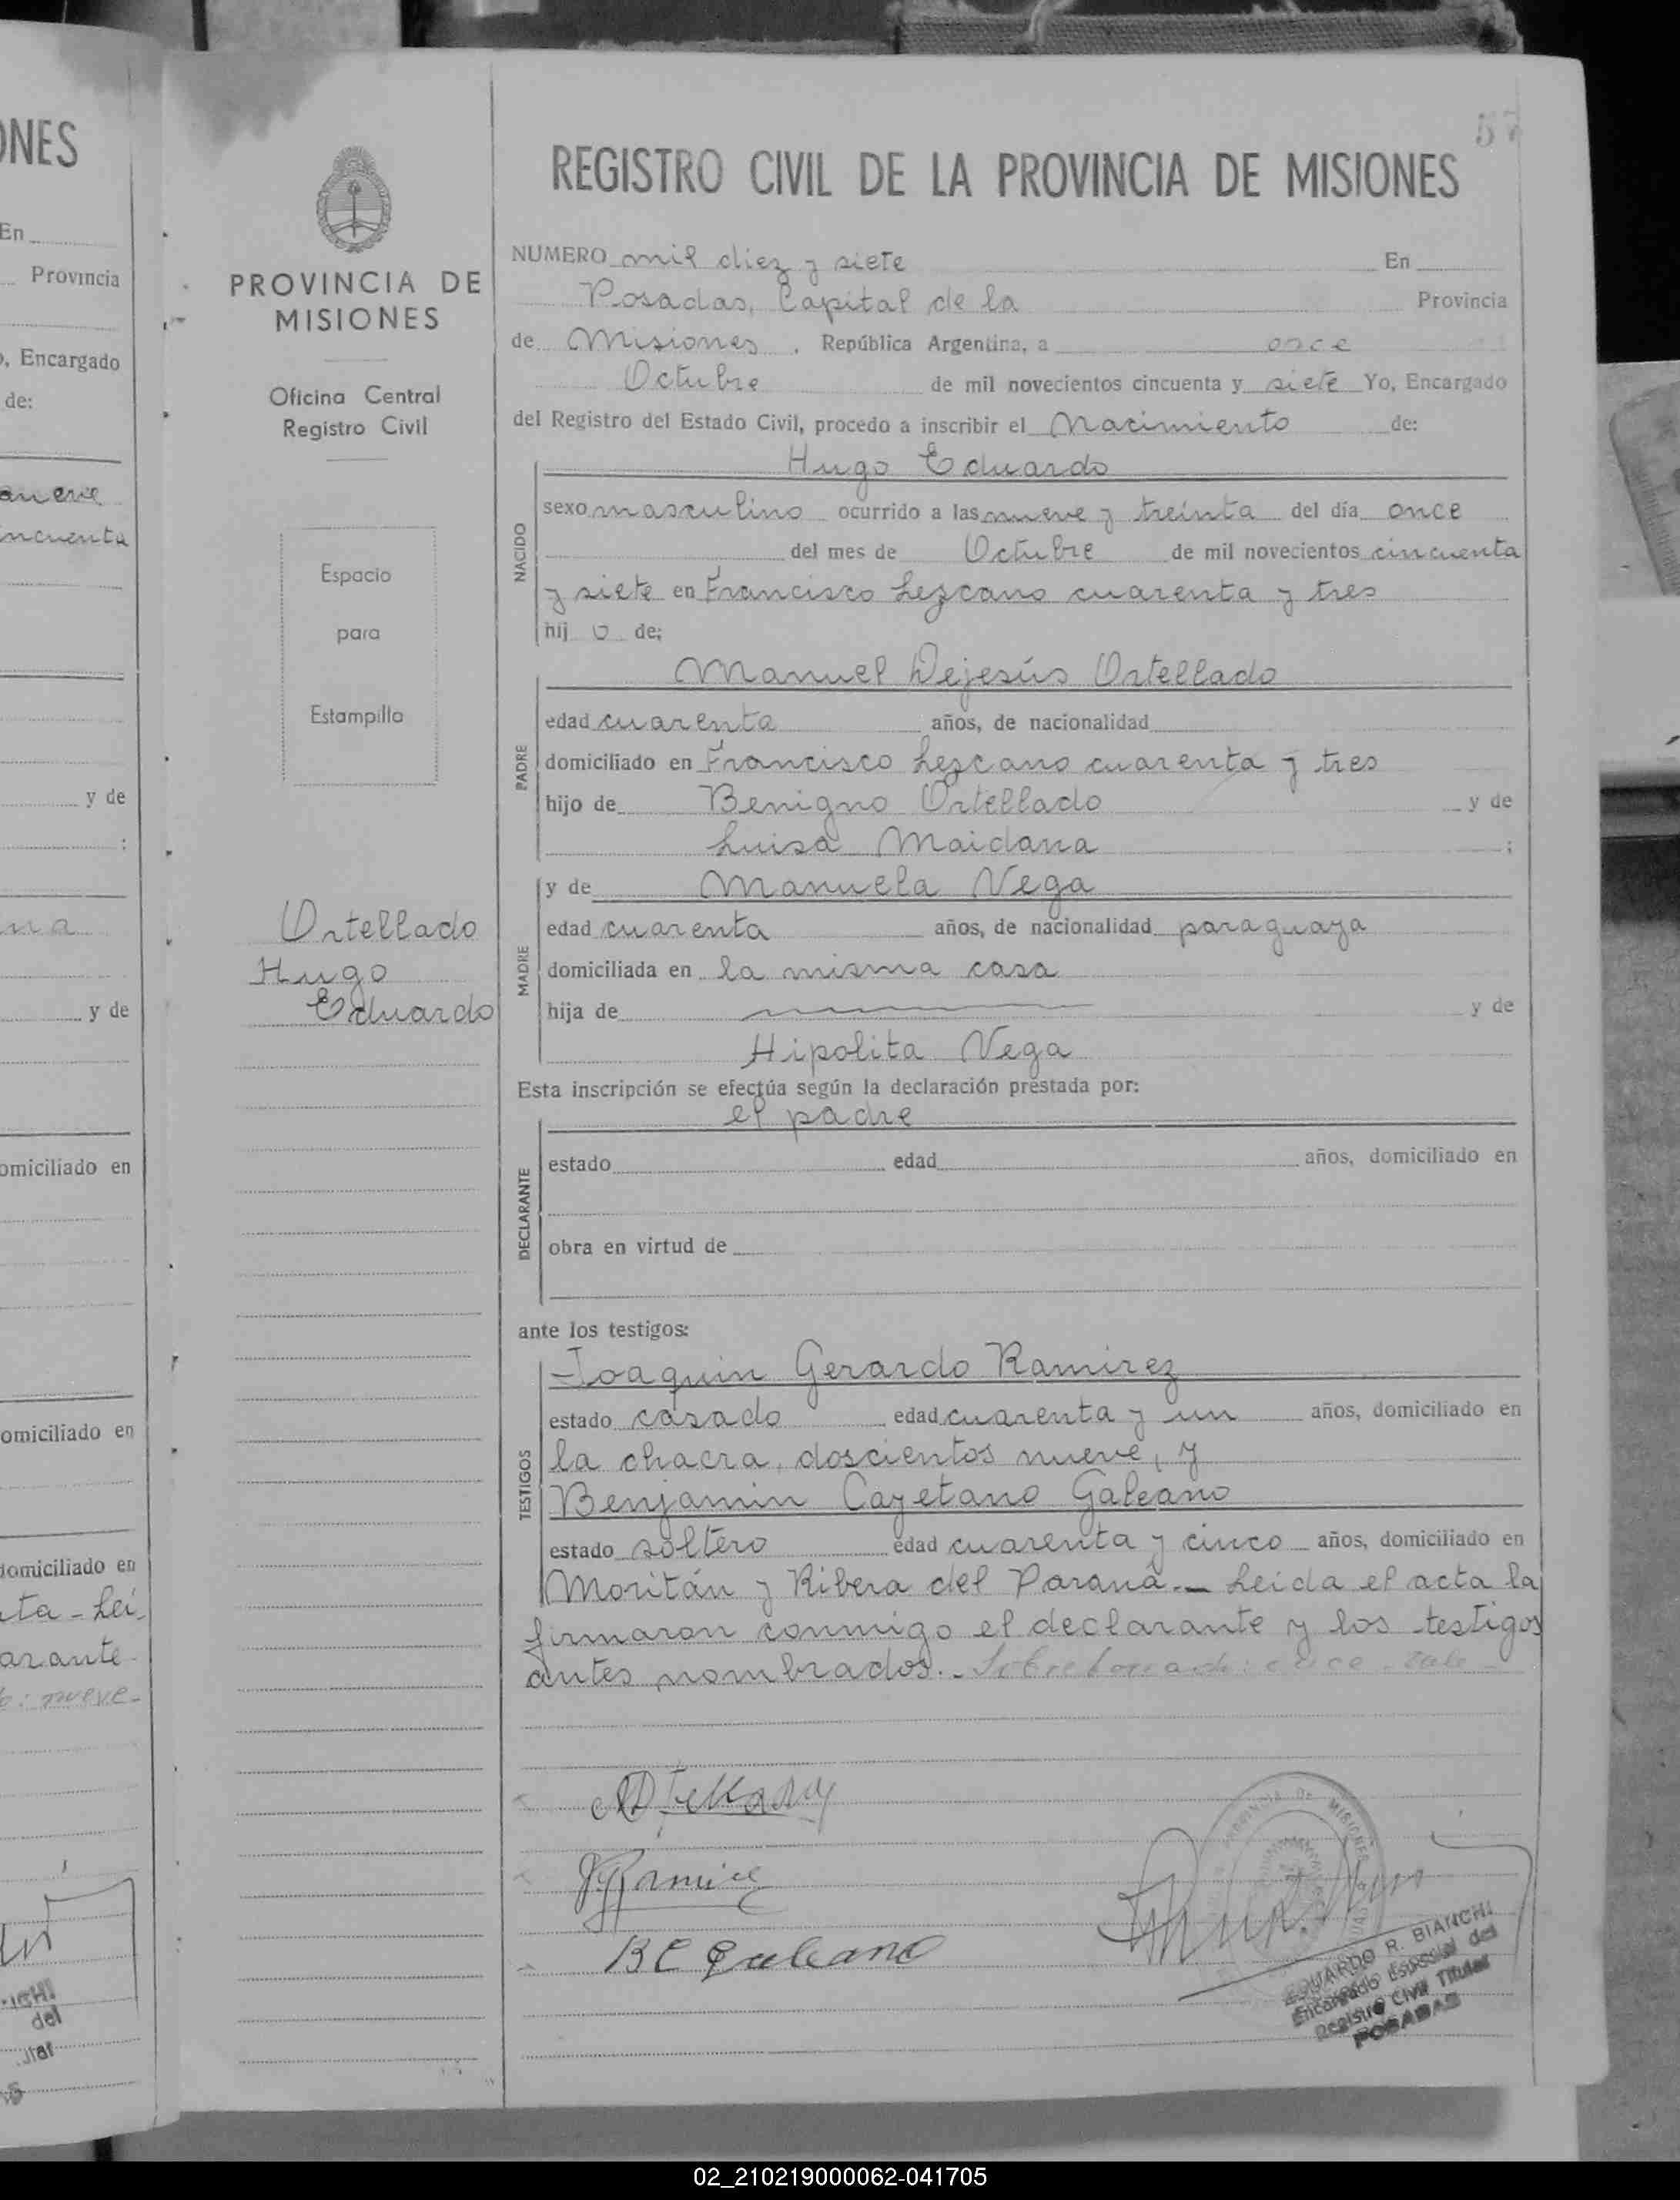 ONES
En
Provincia
o, Encargado
de:
nueve
incuenta
y de
:
na
y de
omiciliado en
omiciliado en
domiciliado en
ta - Leí-
arante
o: nueve-
ICHI
del
PROVINCIA DE
MISIONES
Oficina Central
Registro Civil
Espacio
para
Estampilla
Ortellado
Hugo
Eduardo
57
REGISTRO CIVIL DE LA PROVINCIA DE MISIONES
NUMERO mil diez y siete En
Posadas, Capital de la Provincia
de Misiones, República Argentina, a once
Octubre de mil novecientos cincuenta y siete Yo, Encargado
del Registro del Estado Civil, procedo a inscribir el Nacimiento de:
Hugo Eduardo
NACIDO
sexo masculino ocurrido a las nueve y treinta del día once
del mes de Octubre de mil novecientos cincuenta
y siete en Francisco Lezcano cuarenta y tres
hij o de;
Manuel Dejesús Ortellado
PADRE
edad cuarenta años, de nacionalidad
domiciliado en Francisco Lezcano cuarenta y tres
hijo de Benigno Ortellado y de
Luisa Maidana ;
MADRE
y de Manuela Vega
edad cuarenta años, de nacionalidad paraguaya
domiciliada en la misma casa
hija de y de
Hipolita Vega
Esta inscripción se efectúa según la declaración prestada por:
el padre
DECLARANTE
estado edad años, domiciliado en
obra en virtud de
ante los testigos:
TESTIGOS
Joaquin Gerardo Ramirez
estado casado edad cuarenta y un años, domiciliado en
la chacra doscientos nueve, y
Benjamin Cayetano Galeano
estado soltero edad cuarenta y cinco años, domiciliado en
Moritán y Ribera del Paraná.- Leida el acta la
firmaron conmigo el declarante y los testigos
antes nombrados.- Sobreborrado: once. Vale-
JGRamirez
B C Galeano
PROVINCIA DE MISIONES
EDUARDO R. BIANCHI
Encargado Especial del
Registro Civil Titular
POSADAS
02_210219000062-041705